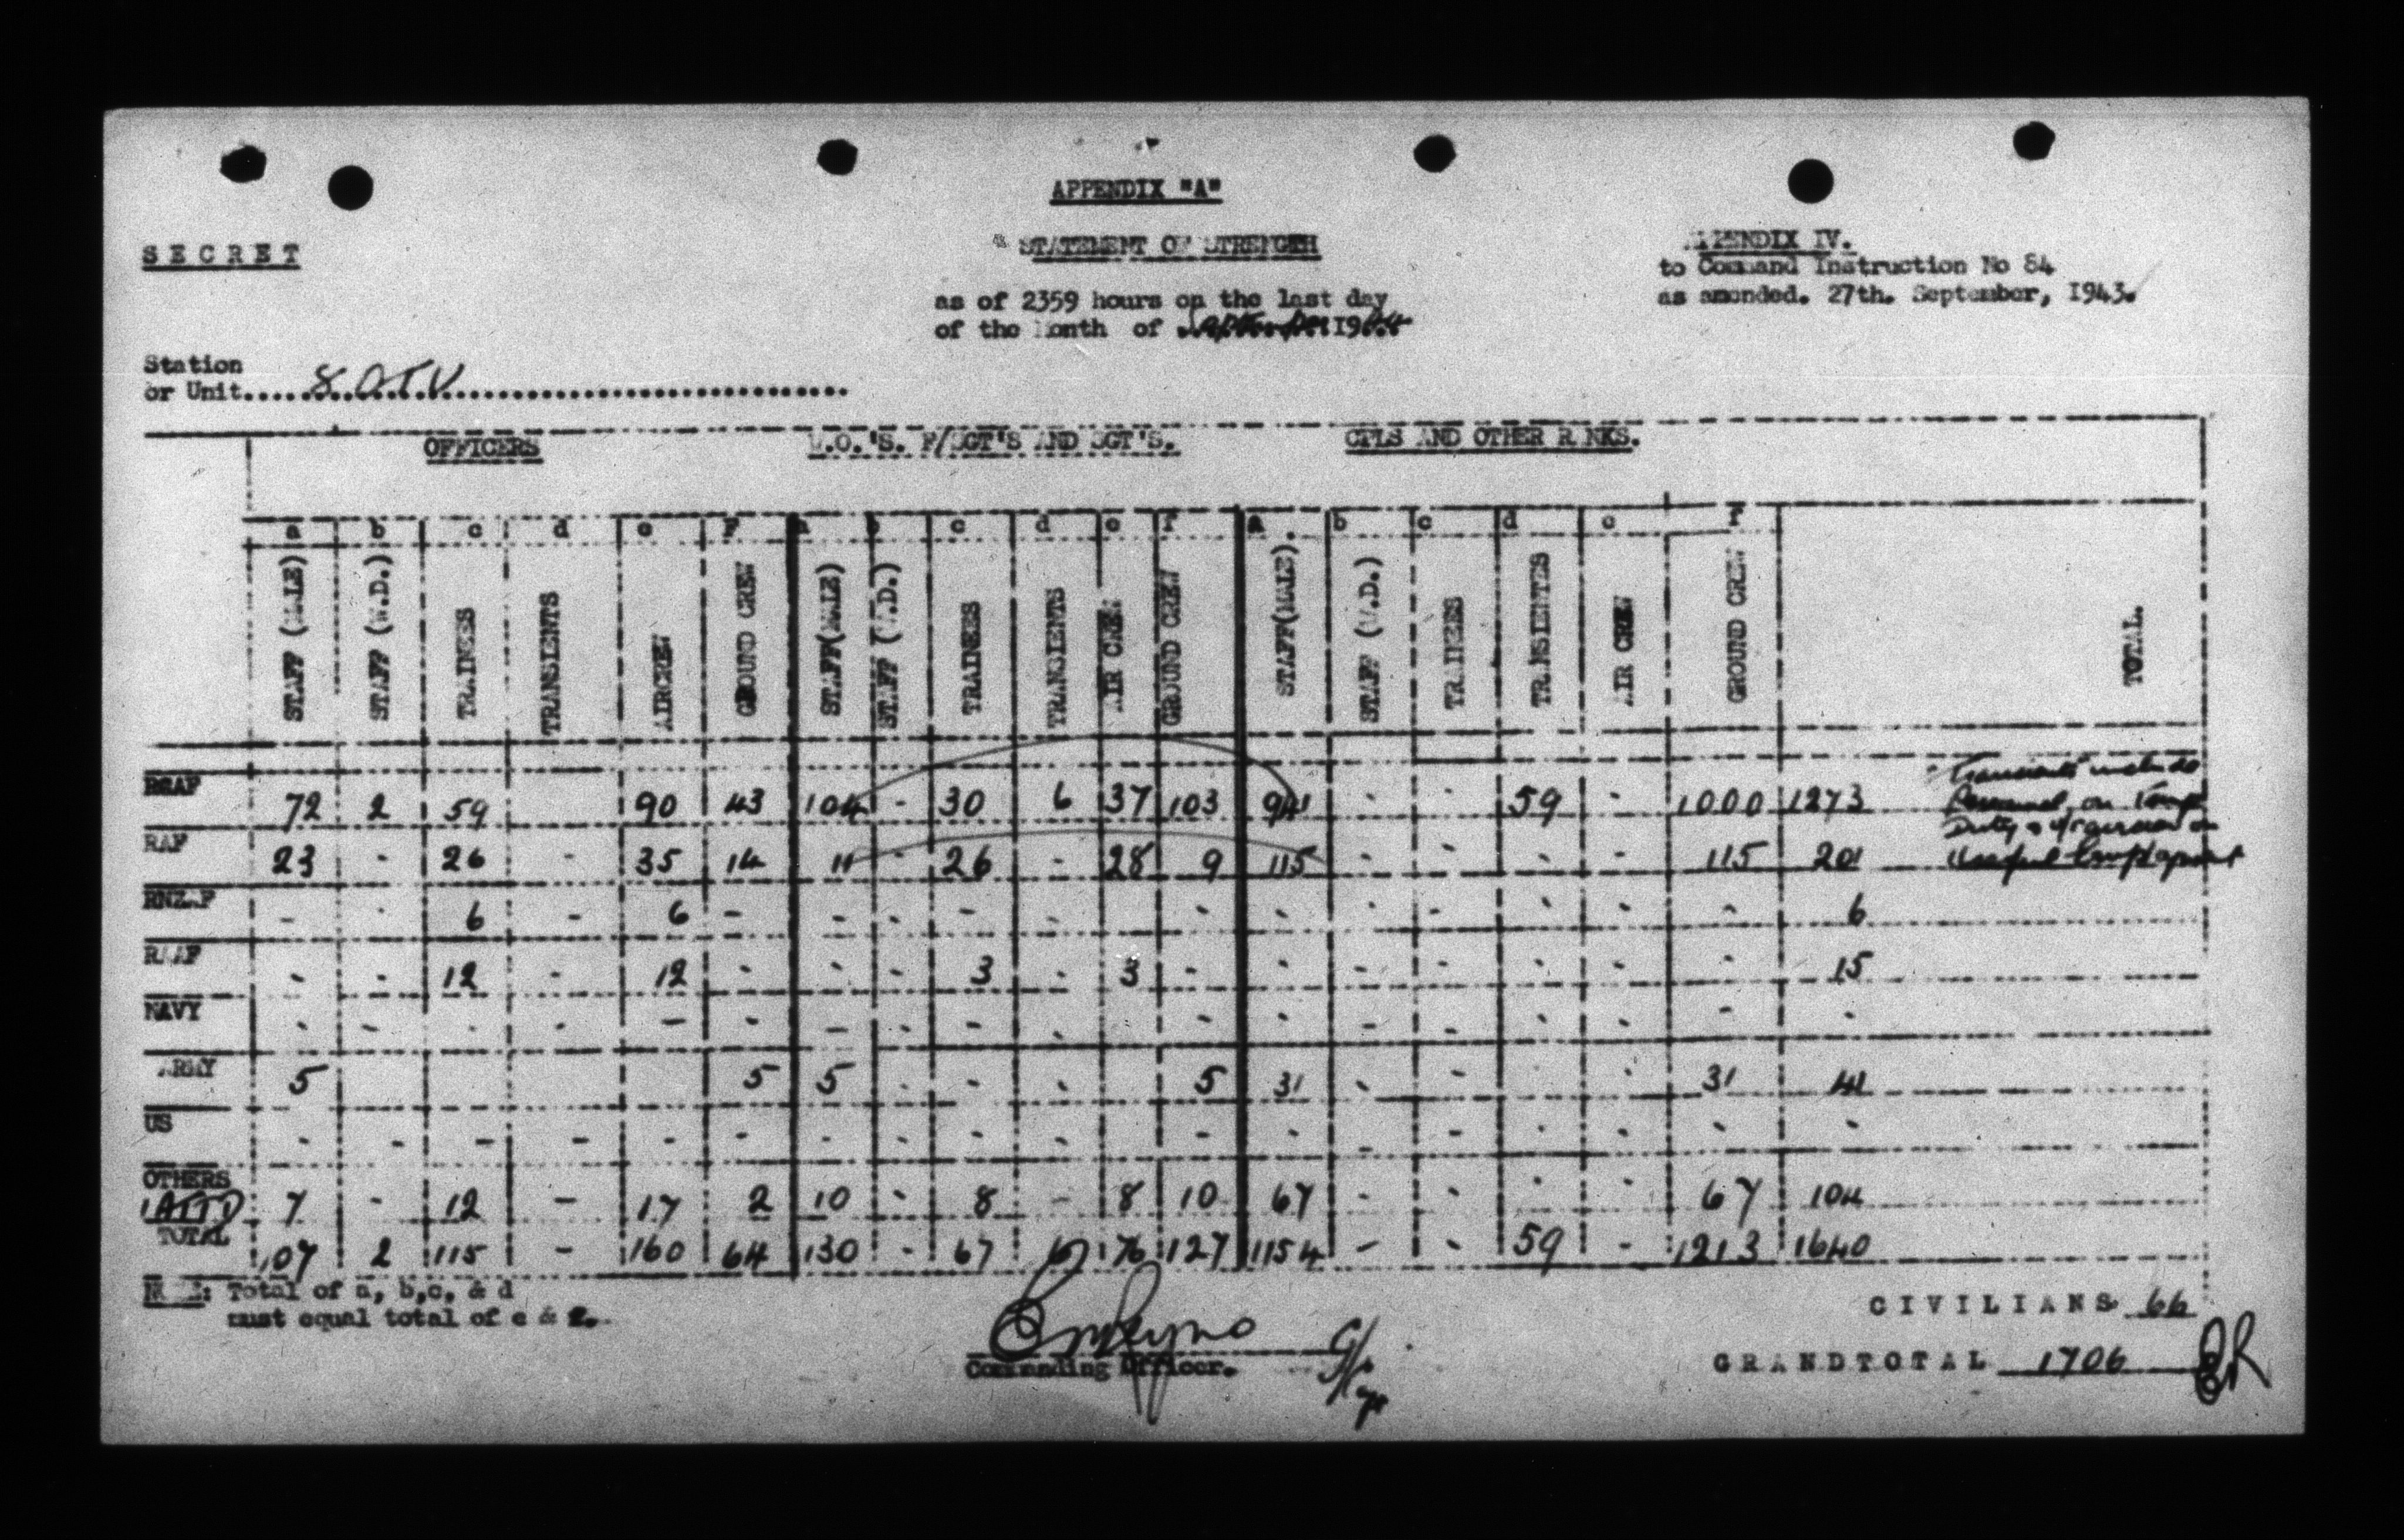 APPENDIX "A"
SECRET
STATEMENT OF STRENGTH
APPENDIX IV.
to Command Instruction No 84
as amended. 27th. September, 1943.
as of 2359 hours on the last day
of the Month of September 1944
Station
or Unit.... 8 O.T.U. ....
OFFICERS W.O.'S. F/SGT'S AND SGT'S. CPLS AND OTHER RANKS.
a b c d e F a b c d e f a b c d e F
STAFF (MALE) STAFF (W.D.) TRAINEES TRANSIENTS AIRCREW GROUND CREW STAFF(MALE) STAFF (W.D.) TRAINEES TRANSIENTS AIR CREW GROUND CREW STAFF(MALE). STAFF (W.D.) TRAINEES TRANSIENTES AIR CREW GROUND CREW TOTAL.
RCAF 72 2 59 90 43 104 - 30 6 37 103 941 - - 59 - 1000 1273
Transients include
Personnel on Temp
Duty &
Useful Employment
RAF 23 - 26 - 35 14 11 - 26 - 28 9 115 - - - - 115 201
RNZAF - - 6 - 6 - - - - - - - - - - - - 6
RAAF - - 12 - 12 - - - 3 - 3 - - - - - - - 15
NAVY - - - - - - - - - - - - - - - - - -
ARMY 5 5 5 - - - 5 31 - - - 31 41
US - - - - - - - - - - - - - - - - -
OTHERS
(ATTD) 7 - 12 - 17 2 10 - 8 - 8 10 67 - - - - 67 104
TOTAL 107 2 115 - 160 64 130 - 67 6 76 127 1154 - - 59 - 1213 1640
NOTE: Total of a, b,c, & d
must equal total of e & f.
CIVILIANS 66
Commanding Officer.
GRANDTOTAL 1706